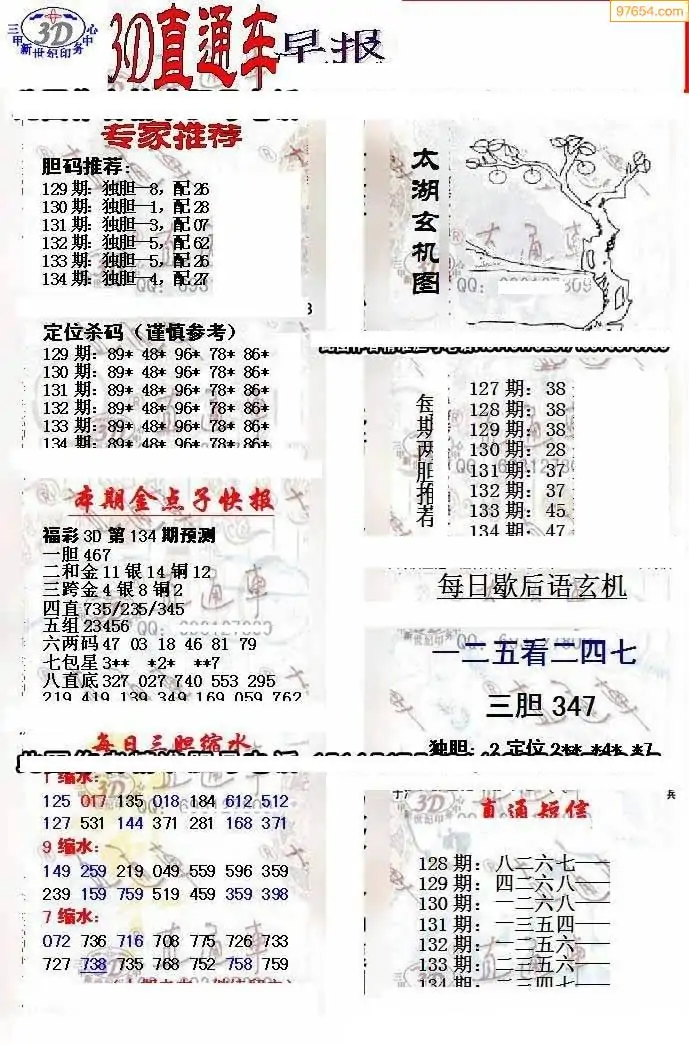 97654.com
三甲 3D 中心
新世纪印务
3D直通车早报
专家推荐
胆码推荐:
129 期: 独胆—8, 配 26
130 期: 独胆—1, 配 28
131 期: 独胆—3, 配 07
132 期: 独胆—5, 配 62
133 期: 独胆—5, 配 26
134 期: 独胆—4, 配 27
定位杀码（谨慎参考）
129 期: 89* 48* 96* 78* 86*
130 期: 89* 48* 96* 78* 86*
131 期: 89* 48* 96* 78* 86*
132 期: 89* 48* 96* 78* 86*
133 期: 89* 48* 96* 78* 86*
134 期: 89* 48* 96* 78* 86*
本期金点子快报
福彩 3D 第 134 期预测
一胆 467
二和金 11 银 14 铜 12
三跨金 4 银 8 铜 2
四直 735/235/345
五组 23456
六两码 47 03 18 46 81 79
七包星 3** *2* **7
八直底 327 027 740 553 295
219 419 139 349 169 059 762
每日三胆缩水
1 缩水:
125 017 135 018 184 612 512
127 531 144 371 281 168 371
9 缩水:
149 259 219 049 559 596 359
239 159 759 519 459 359 398
7 缩水:
072 736 716 708 775 726 733
727 738 735 768 752 758 759
太湖玄机图
每期两胆推荐
127 期: 38
128 期: 38
129 期: 38
130 期: 28
131 期: 37
132 期: 37
133 期: 45
134 期: 47
每日歇后语玄机
一二五看二四七
三胆 347
独胆: 2 定位 2** *4* **7
直通短信
128 期: 八二六七——
129 期: 四二六八——
130 期: 一二六八——
131 期: 一三五四——
132 期: 一二五六——
133 期: 二三五六——
134 期: 二三四七——